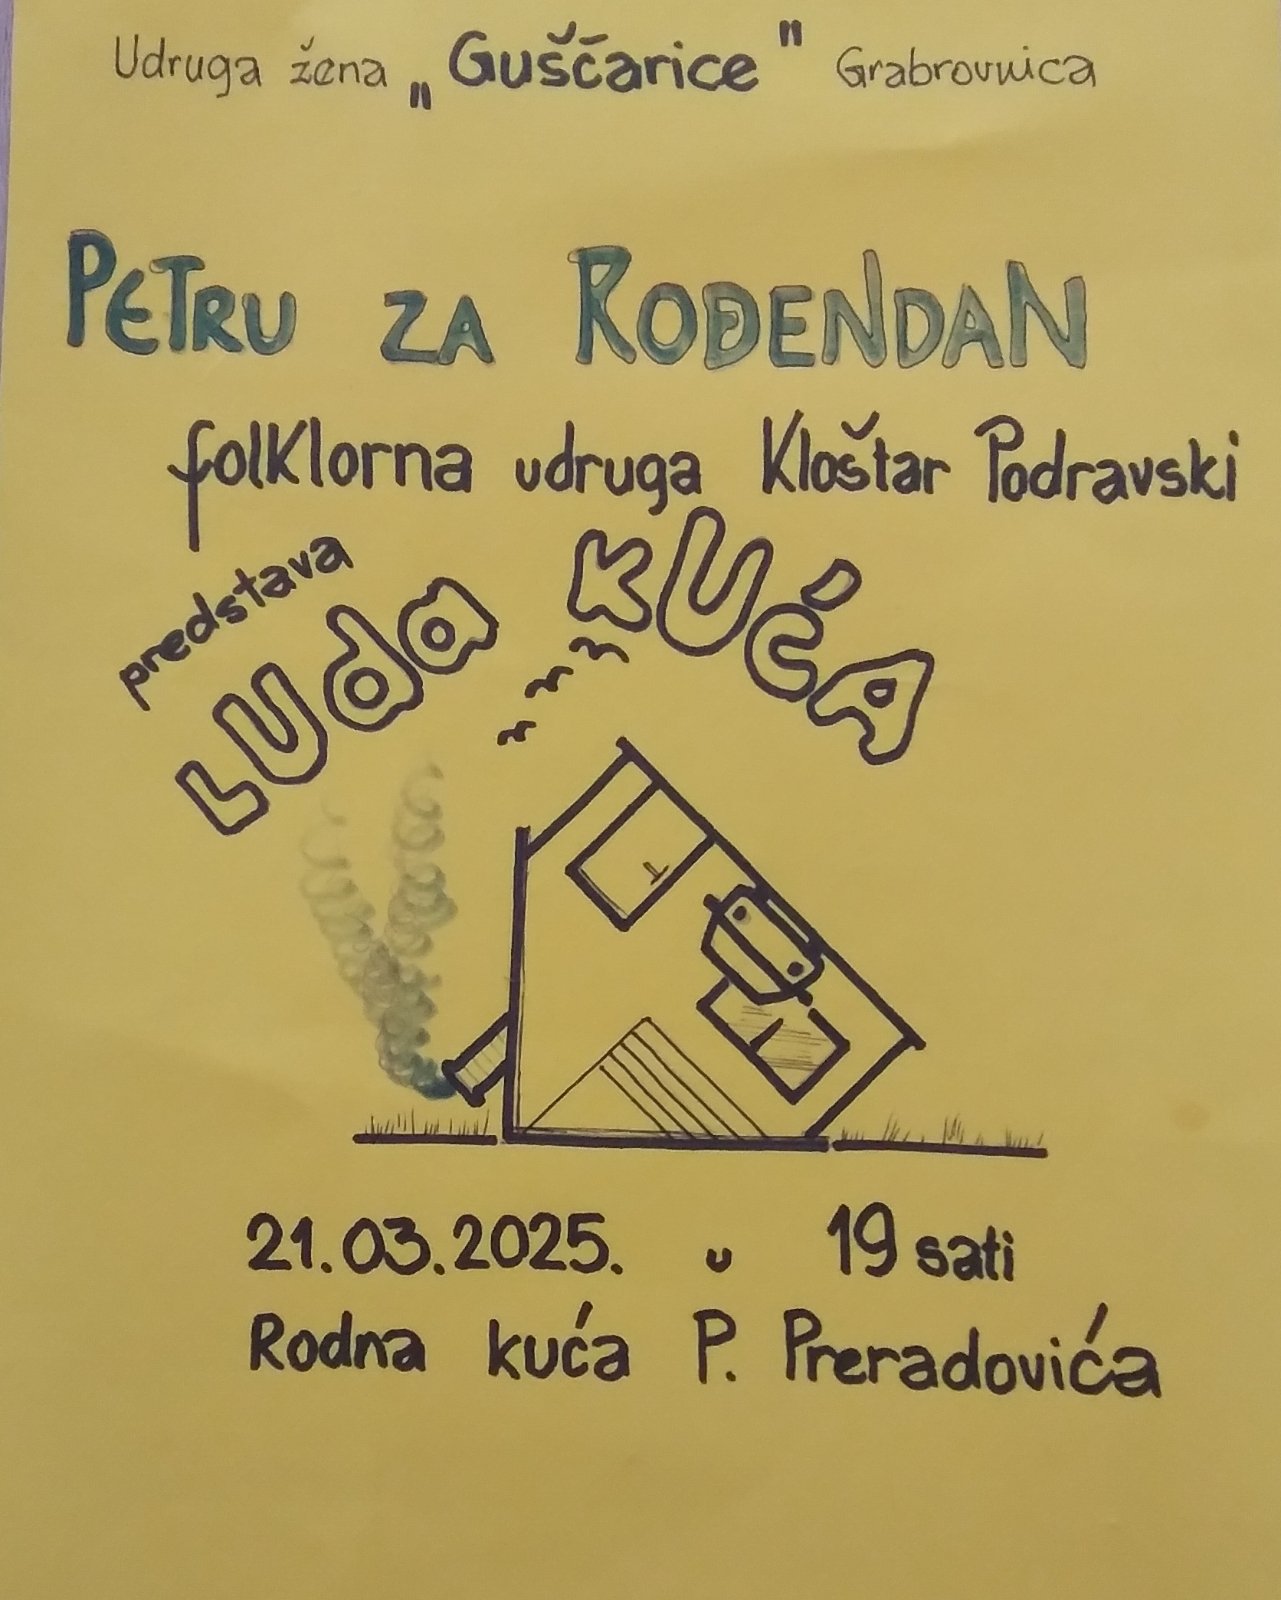 Udruga žena „Guščarice" Grabrovnica
PETRU ZA ROĐENDAN
folklorna udruga Kloštar Podravski
predstava
LUda KUĆA
21.03.2025. u 19 sati
Rodna kuća P. Preradovića